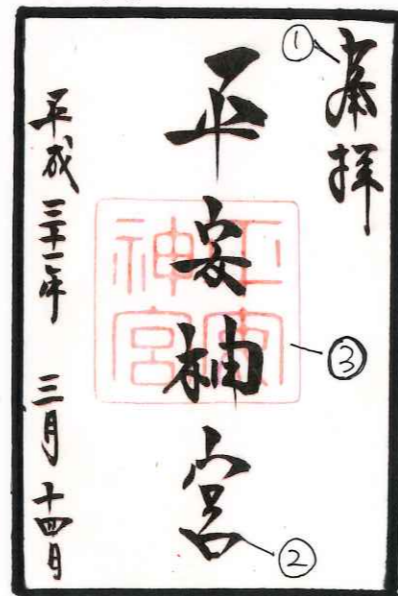 ①
奉拝
平安神宮
平安
神宮
③
②
平成三十一年 三月 十四日